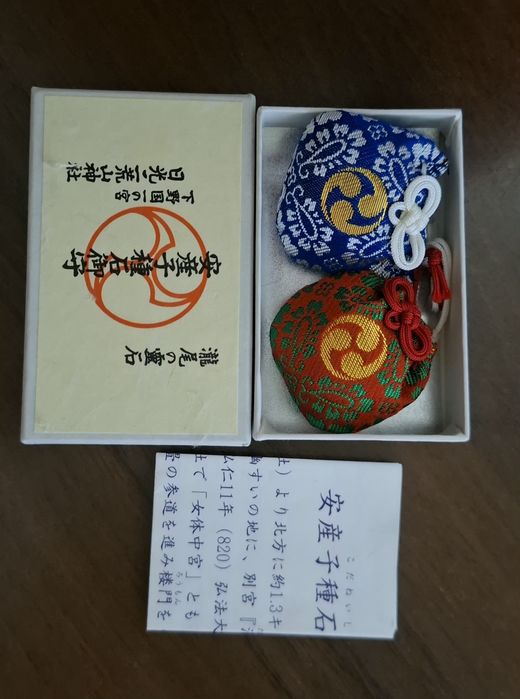 瀧尾の靈石
安産子種石御守
下野国一の宮
日光二荒山神社
安産子種石
こだねいし
）より北方に約1.3キ
すいの地に、別宮『
仁11年（820）弘法大
で「女体中宮」とも
の参道を進み楼門を
ろうもん